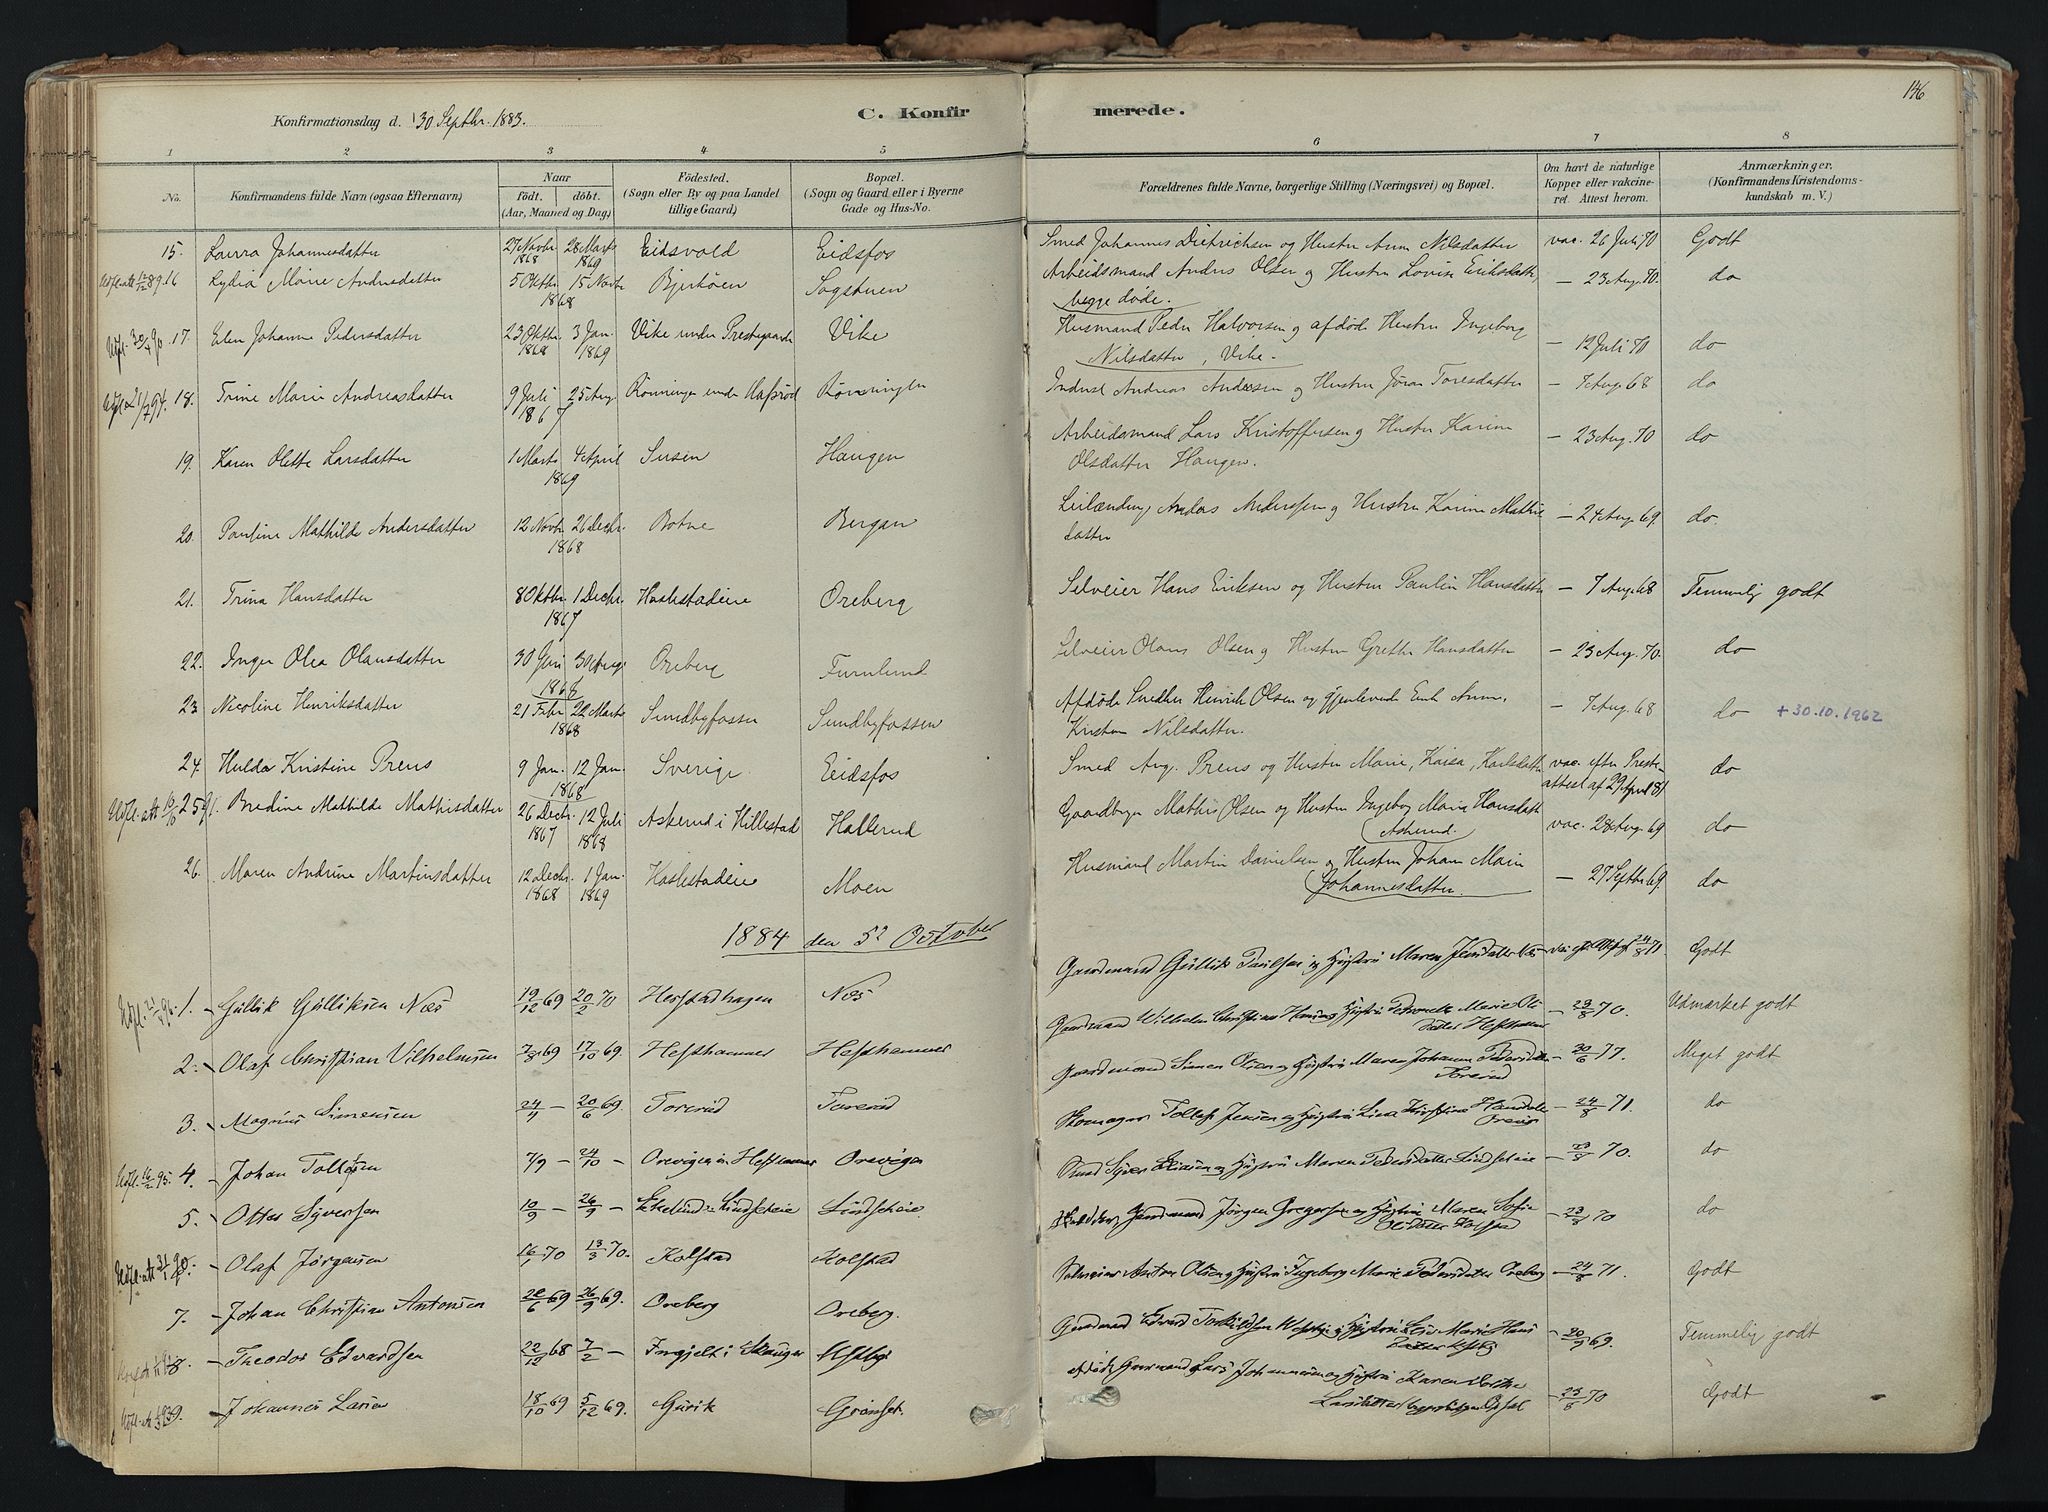 146
Konfirmationsdag d. 30 Septbr. 1883.
C. Konfirmerede.
1 2 3 4 5 6 7 8
No.
Konfirmandens fulde Navn (ogsaa Efternavn)
Naar
født. døbt.
(Aar, Maaned og Dag)
Fødested.
(Sogn eller By og paa Landet
tillige Gaard)
Bopæl.
(Sogn og Gaard eller i Byerne
Gade og Hus-No.
Forældrenes fulde Navne, borgerlige Stilling (Næringsvei) og Bopæl.
Om havt de naturlige
Kopper eller vakcine-
ret. Attest herom.
Anmærkninger.
(Konfirmandens Kristendoms-
kundskab m. V.)
15. Laura Johannesdatter 27 Novbr 1868 28 Marts 1869 Eidsvold Eidsfos Smed Johannes Dietrichsen og Hustru Anne Nilsdatter vac. 26 Juli 70 Godt
16 Lydia Marie Andersdatter 5 Oktbr 15 Novbr 1868 Sogstuen Arbeidsmand Anders Olsen og Hustru Lovise Eriksdatt, — 23 Aug. 70. do
begge døde.
17. Elen Johanne Pedersdatter 23 Oktbr 1868 3 Jan. 1869 Vike under Prestegaarden Vike Husmand Peder Halvorsen og afdøde Hustru Ingeborg
Nilsdatter, Vike. — 12 Juli 70 do
18. Trine Marie Andreasdatter 9 Juli 25 Aug. 1867 Rønningen under Rønningen Inderst Andreas Andersen og Hustru Jøran Toresdatter — 7 Aug. 68 do
19. Karen Olette Larsdatter 1 Marts 4 April 1869 Haugen Arbeidsmand Lars Kristoffersen og Hustru Karine — 23 Aug. 70 do
Olsdatter Haugen.
20. Pauline Mathilde Andersdatter 12 Novbr. 26 Decbr. 1868 Botne Bergan Leilænding Anders Anderssen og Hustru Karine Mathis — 24 Aug. 69. do.
datter
21. Trina Hansdatter 8 Oktbr. 1 Decbr. 1867 Haslestadeie Oreberg Selveier Hans Eriksen og Hustru Pauline Hansdatter — 7 Aug. 68 Temmelig godt
22. Inger Olea Olausdatter 30 Juni 30 Aug. 1868 Oreberg Furulund Selveier Olaus Olsen og Hustru Grethe Hansdatter — 23 Aug. 70. do
23 Nicoline Henriksdatter 21 Febr 22 Marts 1868 Sundbyfossen Sundbyfossen Afdøde Snedker Henrik Olsen og gjenlevende Enke Anne — 7 Aug. 68 do + 30.10.1962
Kirstine Nilsdatter.
24. Hulda Kristine Prens 9 Jan. 12 Jan. 1868 Sverige Eidsfos Smed Aug. Prens og Hustru Marie, Kaisa, Karlsdatter vac. efter Preste- do
attest af 29 April 81
25 Bredine Mathilde Mathisdatter 26 Decbr. 1867 12 Juli 1868 Askerud i Hillestad Hallerud Gaardbruger Mathis Olsen og Hustru Ingeborg Maria Hansdatt vac. 28 Aug. 69 do
Askerud.
26. Maren Andrine Martinsdatter 12 Decbr. 1868 1 Jan. 1869 Haslestadeie Moen Husmand Martin Danielsen og Hustru Johanne Marie — 27 Septbr 69. do
Johannesdatter.
1884 den 5te October
1. Gullik Gulliksen Næs 19/12 69 20/2 70 Herstadhagen Næs Gaardmand Gullik Paulsen og Hustru Maren Jensdatter Næs 24/8 71. Godt
2. Olaf Christian Vilhelmsen 7/8 69 17/10 69. Hefthammer Hefthammer Gaardmand Wilhelm Christian Hansen og Hustru Petronelle Marie Ols — 29/8 70. Udmærket godt
datter Hefthammer
3. Magnus Simensen 24/4 — 20/6 69. Torerud Torerud Gaardmand Simen Olsen og Hustru Maren Johanne Pedersdatter — 30/6 77. Meget godt
Torerud
4. Johan Tollefsen 7/9 — 24/10 — Orevigen Hefthammer Orevigen Skomager Tollef Jensen og Hustru Lina Kirstine Hansdatter — 24/8 71. do
5. Otto Syversen 10/9 — 26/9 — Lindseteie Smed Syver Eliasen og Hustru Maren Pedersdatter — 23/8 70. do
Olaf Jørgensen 16/1 70 13/3 70. Kolstad Kolstad Gaardmand Jørgen Gregersen og Hustru Maren Sofie — 23/8 70 do
Olsdatter Kolstad
7. Johan Christian Antonsen 20/6 69 26/9 69. Oreberg Oreberg. Selveier Anton Olsen og Hustru Ingeborg Marie Pedersdatter Oreberg — 24/8 71. Godt
8. Theodor Edvardsen 22/12 68 7/2 — Gaardmand Edvard Torkildsen og Hustru Marie Hans — 20/9 69. Temmelig godt
9. Johannes Larsen 18/10 69 5/12 69. Grønset. Afdøde Gaardmand Lars Johannesen og Hustru Karen — 23/8 70 Godt
Larsdatter